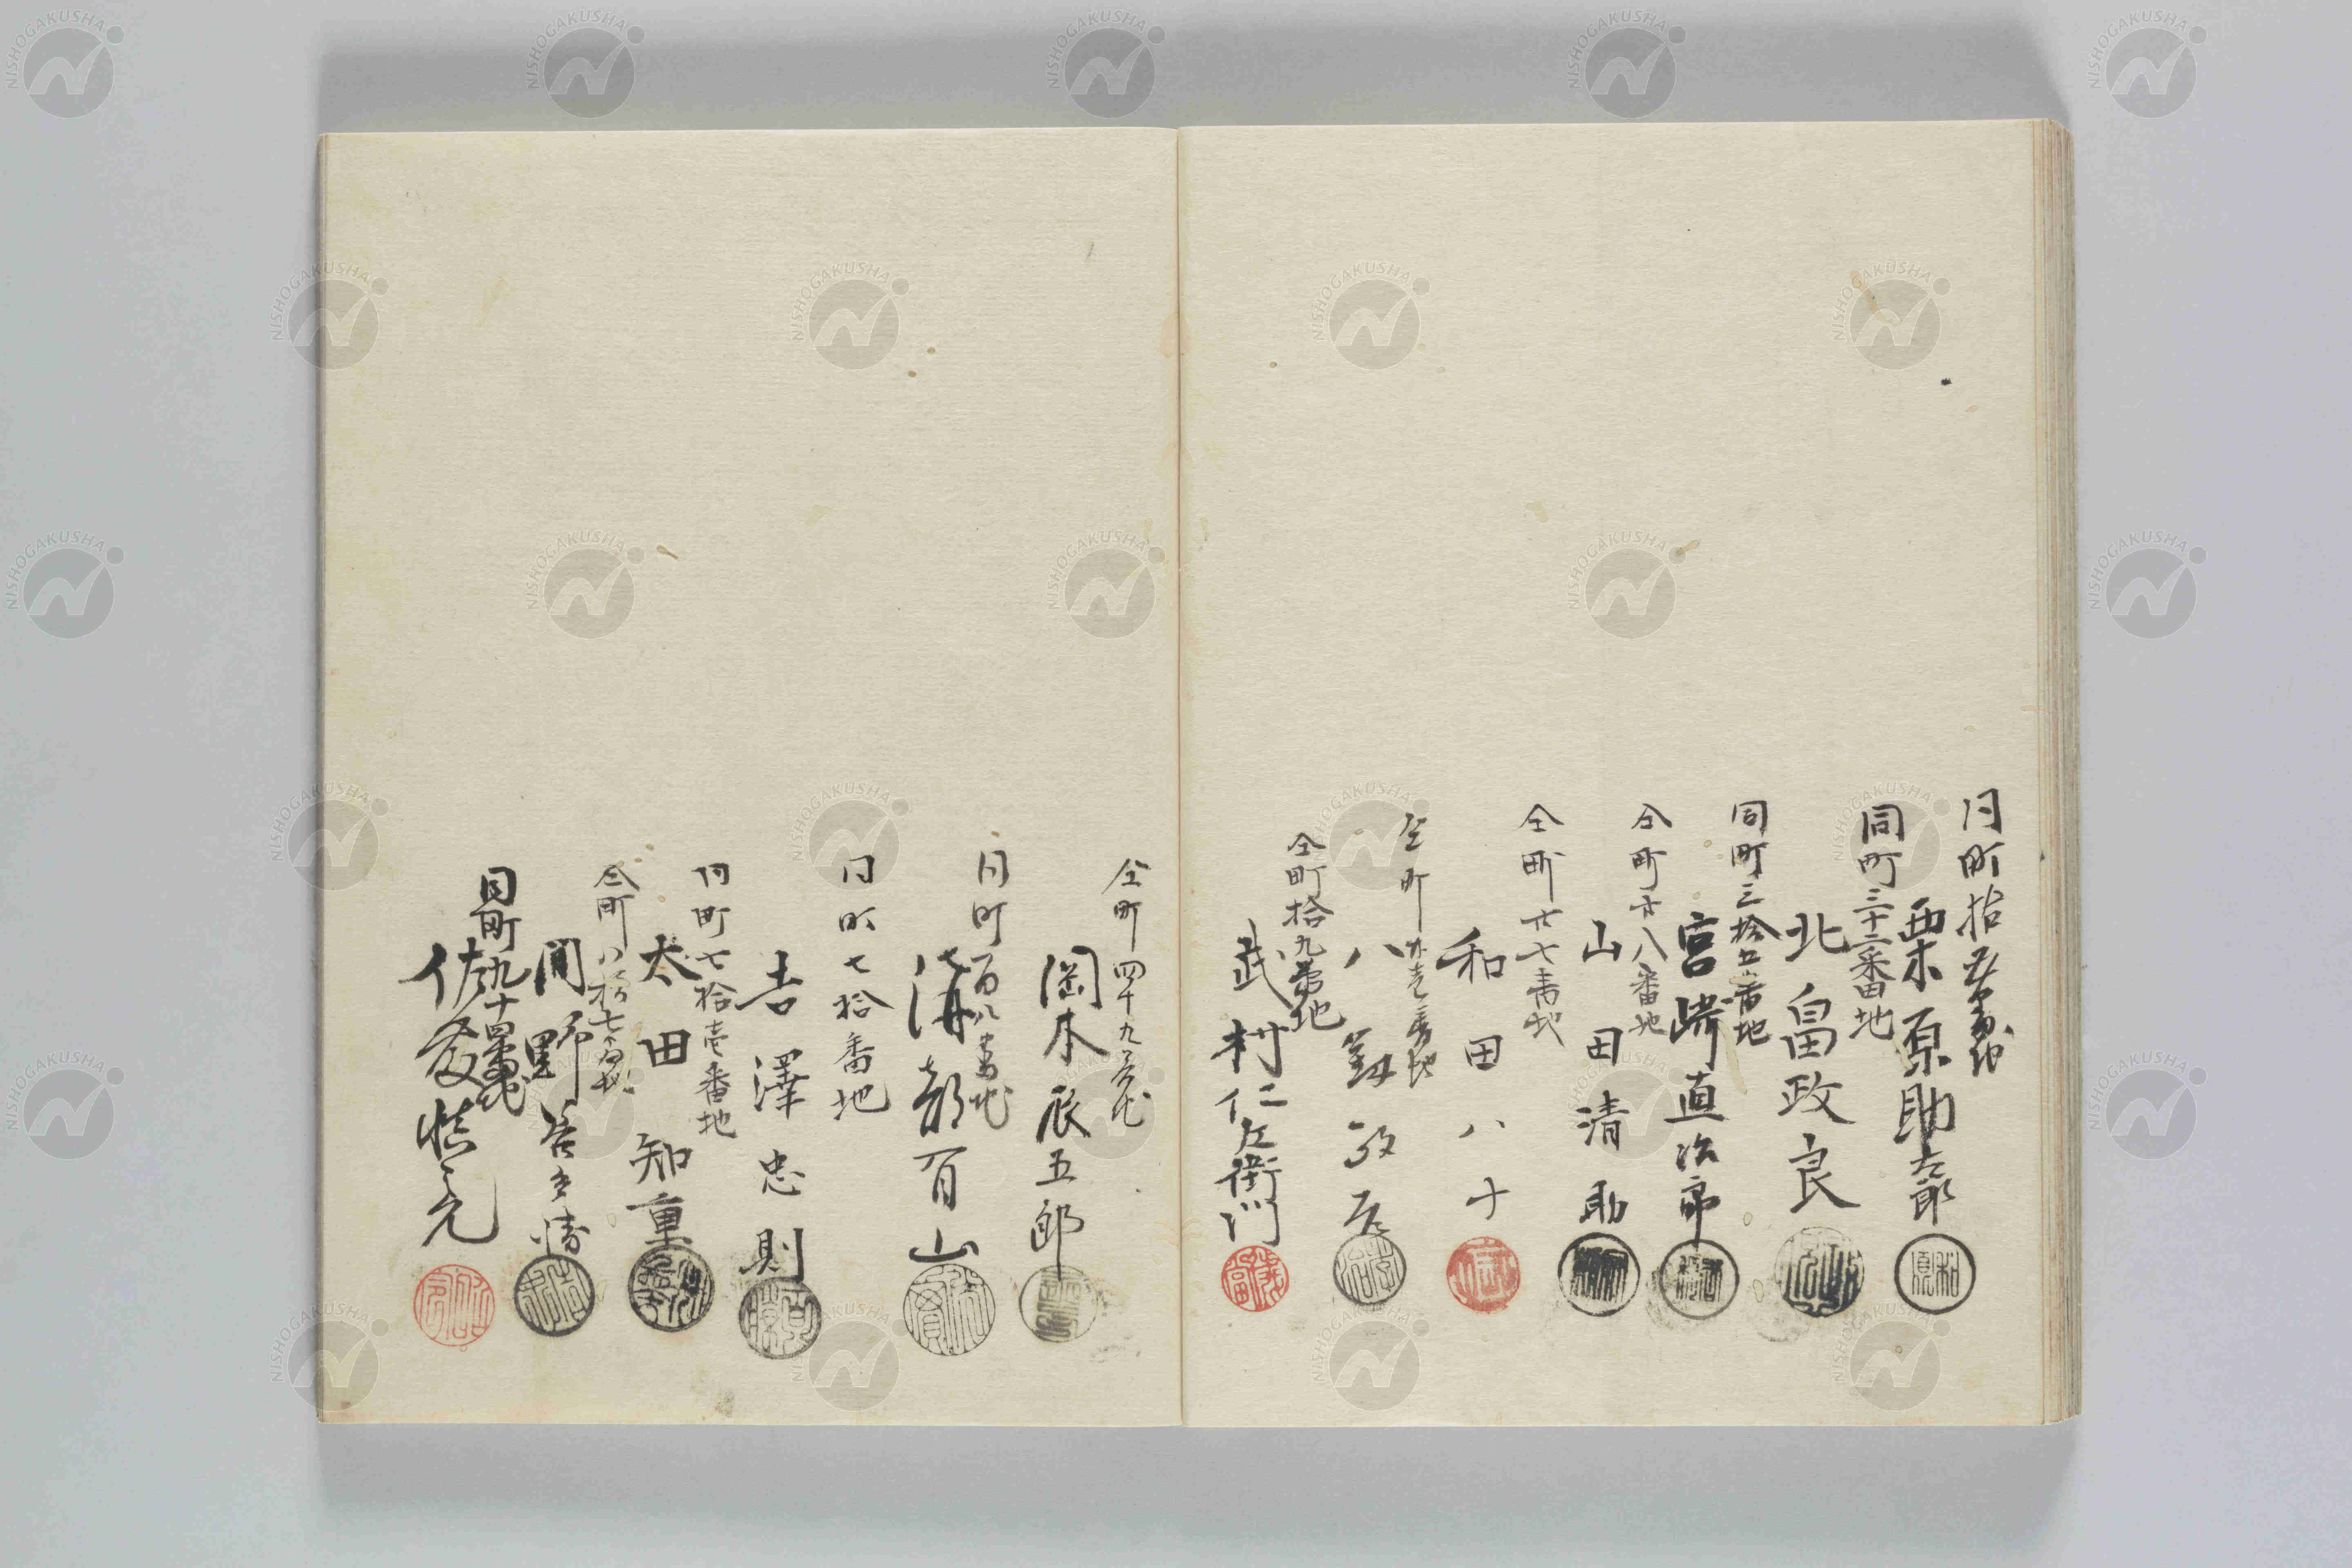 同町拾五番地
栗原助左衛
同町三十二番地
北畠政良
同町三拾五番地
宮崎直治郎
仝町廿八番地
山田清助
仝町廿七番地
和田八十
仝町廿壱番地
八劔
仝町拾九番地
武村仁左衛門
仝町四十九番地
岡本辰五郎
同町百八番地
溝部百山
同町七拾番地
吉澤忠則
同町七拾壱番地
太田知重
仝町八拾七番地
岡野
同町九十四番地
佐々慎元
NISHOGAKUSHA